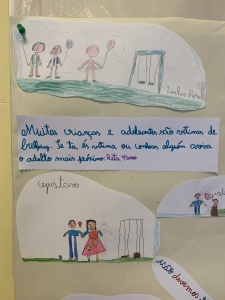 Muitas crianças e adolescentes são vítimas de
bullying. Se tu és vítima ou conheces alguém avisa
o adulto mais próximo. Rita 4ºano
Gustavo
Não devemos